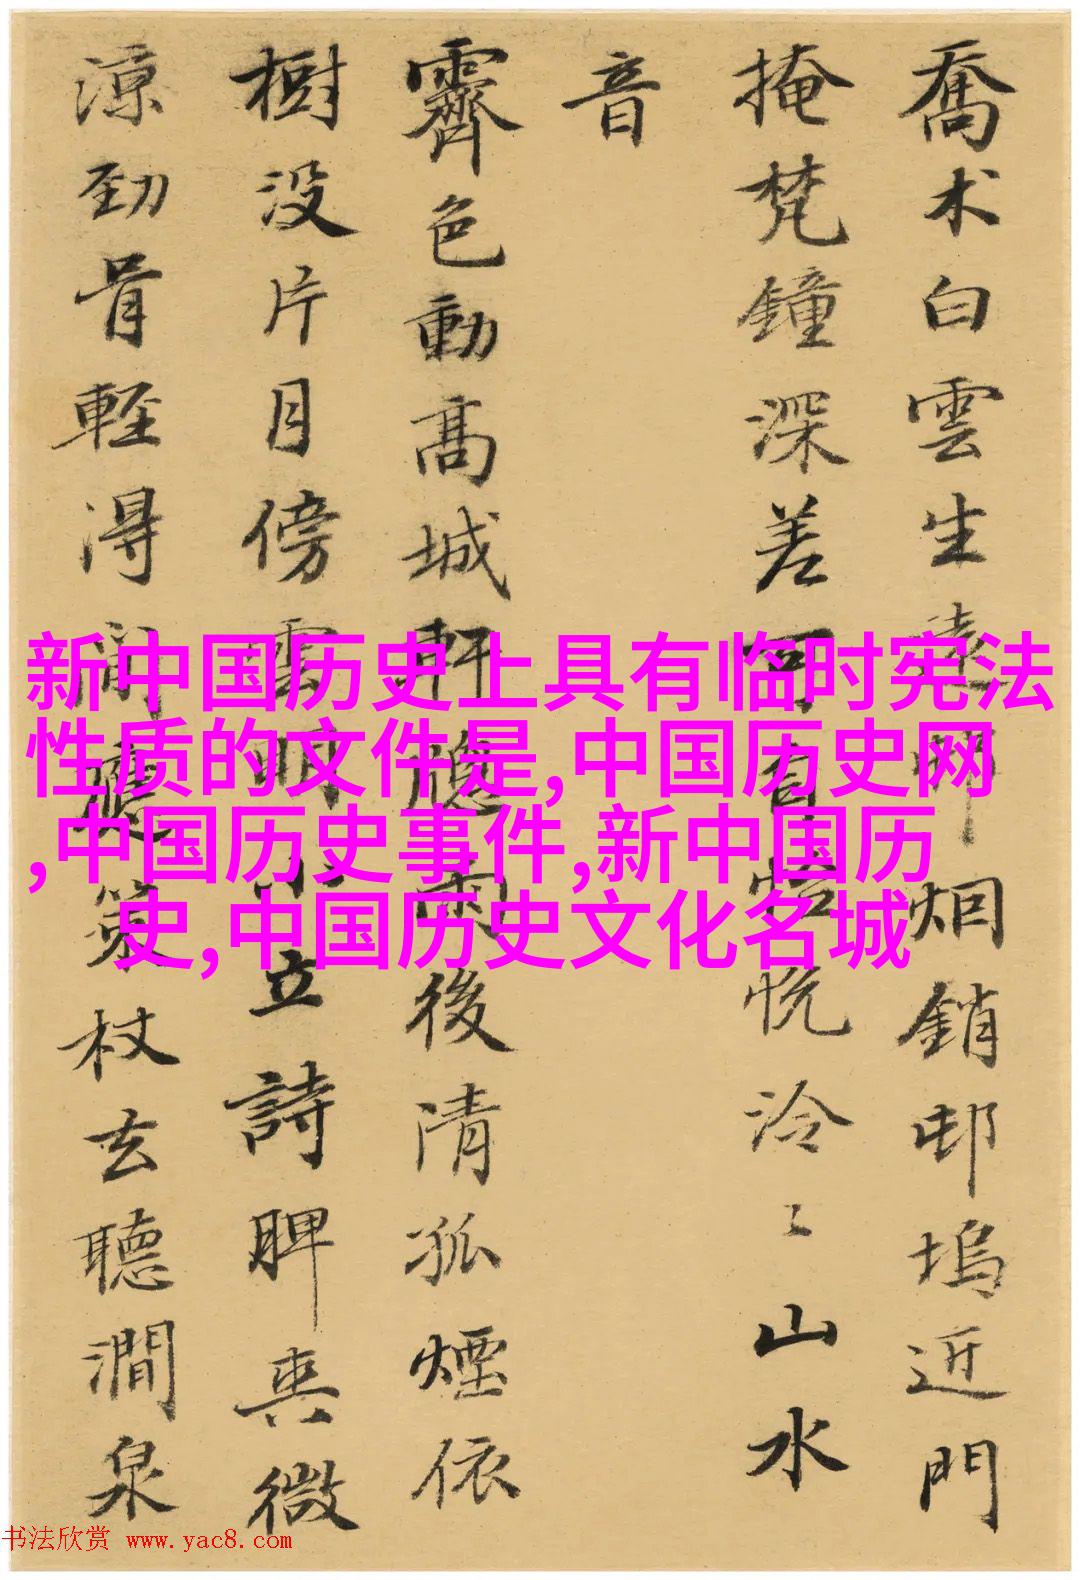 喬木白雲生遠岫烟銷邨塢近門
掩梵鐘深差可自怡悦泠〻山水
音
霽色動高城軒窓雨後清孤煙依
樹没片月傍雲明小立詩脾爽微
涼勁骨輕得閒應策杖去聽澗泉
新中国历史上具有临时宪法
性质的文件是,中国历史网
,中国历史事件,新中国历
史,中国历史文化名城
书法欣赏 www.yac8.com